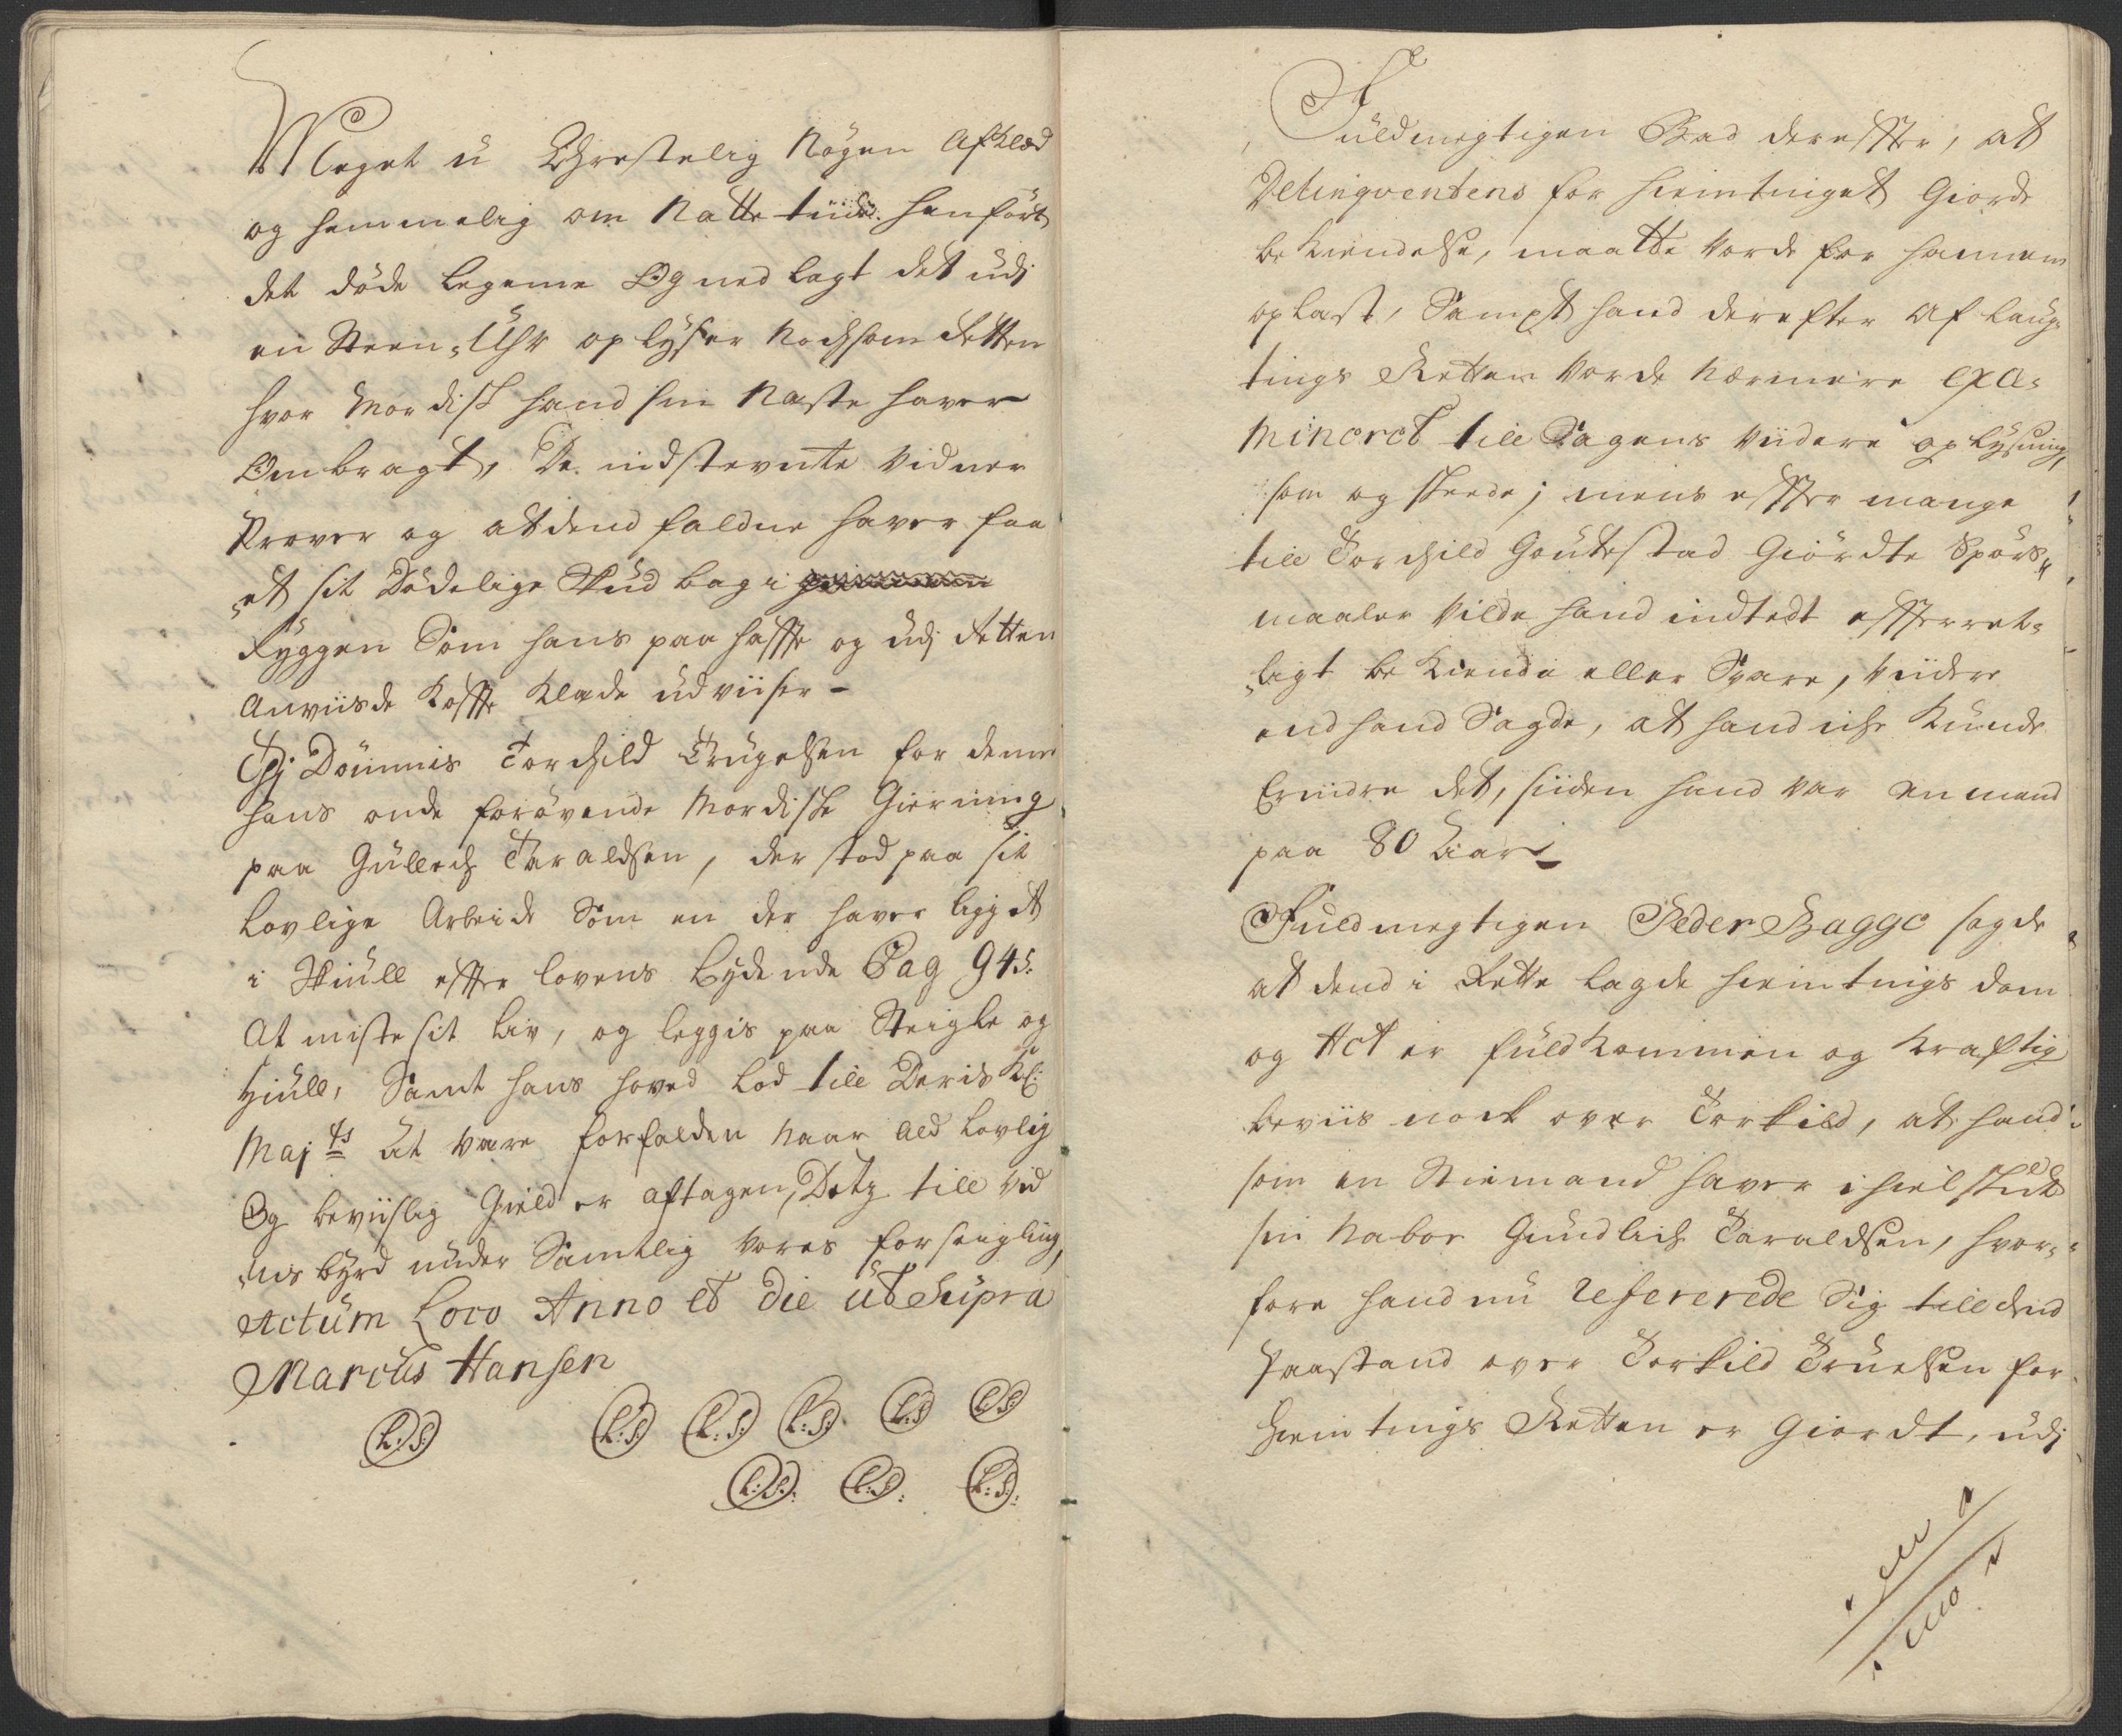 Meget u Christelig Nøgen Afklæd
og hemmelig om Natte tiide henført
det døde legeme Og ned lagt det udj
en Steen-Uhr oplyser Nochsom Retten
hvor Mordisk hand sin Næste haver
Ombragt, De indstevnte Vidner
Prover og at dend faldne haver faa
et sit Dødelige Skud bag i
Ryggen Som hans paa haffte og udj Retten
Anviisde Koffte Klæde udviiser -
Thj Dømmis Torchild Trugelsen for denne
hans onde forøvende Mordiske Gierning
paa Gullech Taraldsen, der stod paa sit
lovlige Arbeide Som en der haver ligget
i Skiull effter lovens lydende Pag 945:
At miste sit liv, og leggis paa Steigle og
Hiull, Samt hans hoved lod till Deris Kl:
Majts At være forfalden naar ald lovlig
Og beviislig Gield er aftagen, Dets till Vid
nis byrd under Samtlig vores forseigling,
Actum Loco Anno et Die ut Supra
Marcus Hansen
L:S: L:S: L:S: L:S: L:S: L:S:
L:S: L:S: L:S:
Fuldmegtigen Bad dereffter, at
Delinqventens for hiemtinget Giorde
bekiendelse, maatte vorde for hannem
oplæst, Sampt hand derefter af laug-
tings Retten vorde nærmere exa-
mineret till Sagens viidere oplysning,
som og skeede; mens effter mange
till Torchild Goutestad Giordte Spørs-
maaler vilde hand indtedt efferret-
ligt bekiende eller Svare, viidere
end hand Sagde, at hand iche kunde
Erindre det, siiden hand var en mand
paa 80 Aar
Fuldmegtigen Peder Bagge sagde
at dend i Rette lagde hiemtings dom
og Act er fuldkommen og kraftig
beviis nock over Torkild, at hand
som en Stiemand haver ihielskut
sin Naboe Gundlich Taraldsen, hvor-
fore hand nu refererede Sig till dend
Paastand over Torkild Truelsen for
hiemtings Retten er Giordt, udj